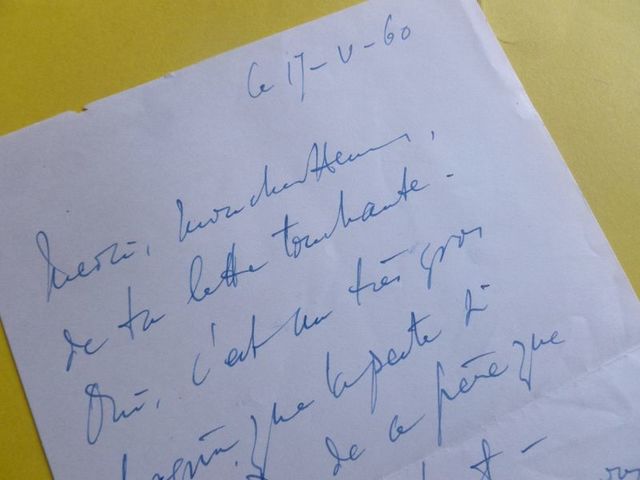 Le 17-V-60
Merci, mon cher
de ta lettre touchante.
Oui, c'est un très gros
chagrin, que la perte
de ce père que